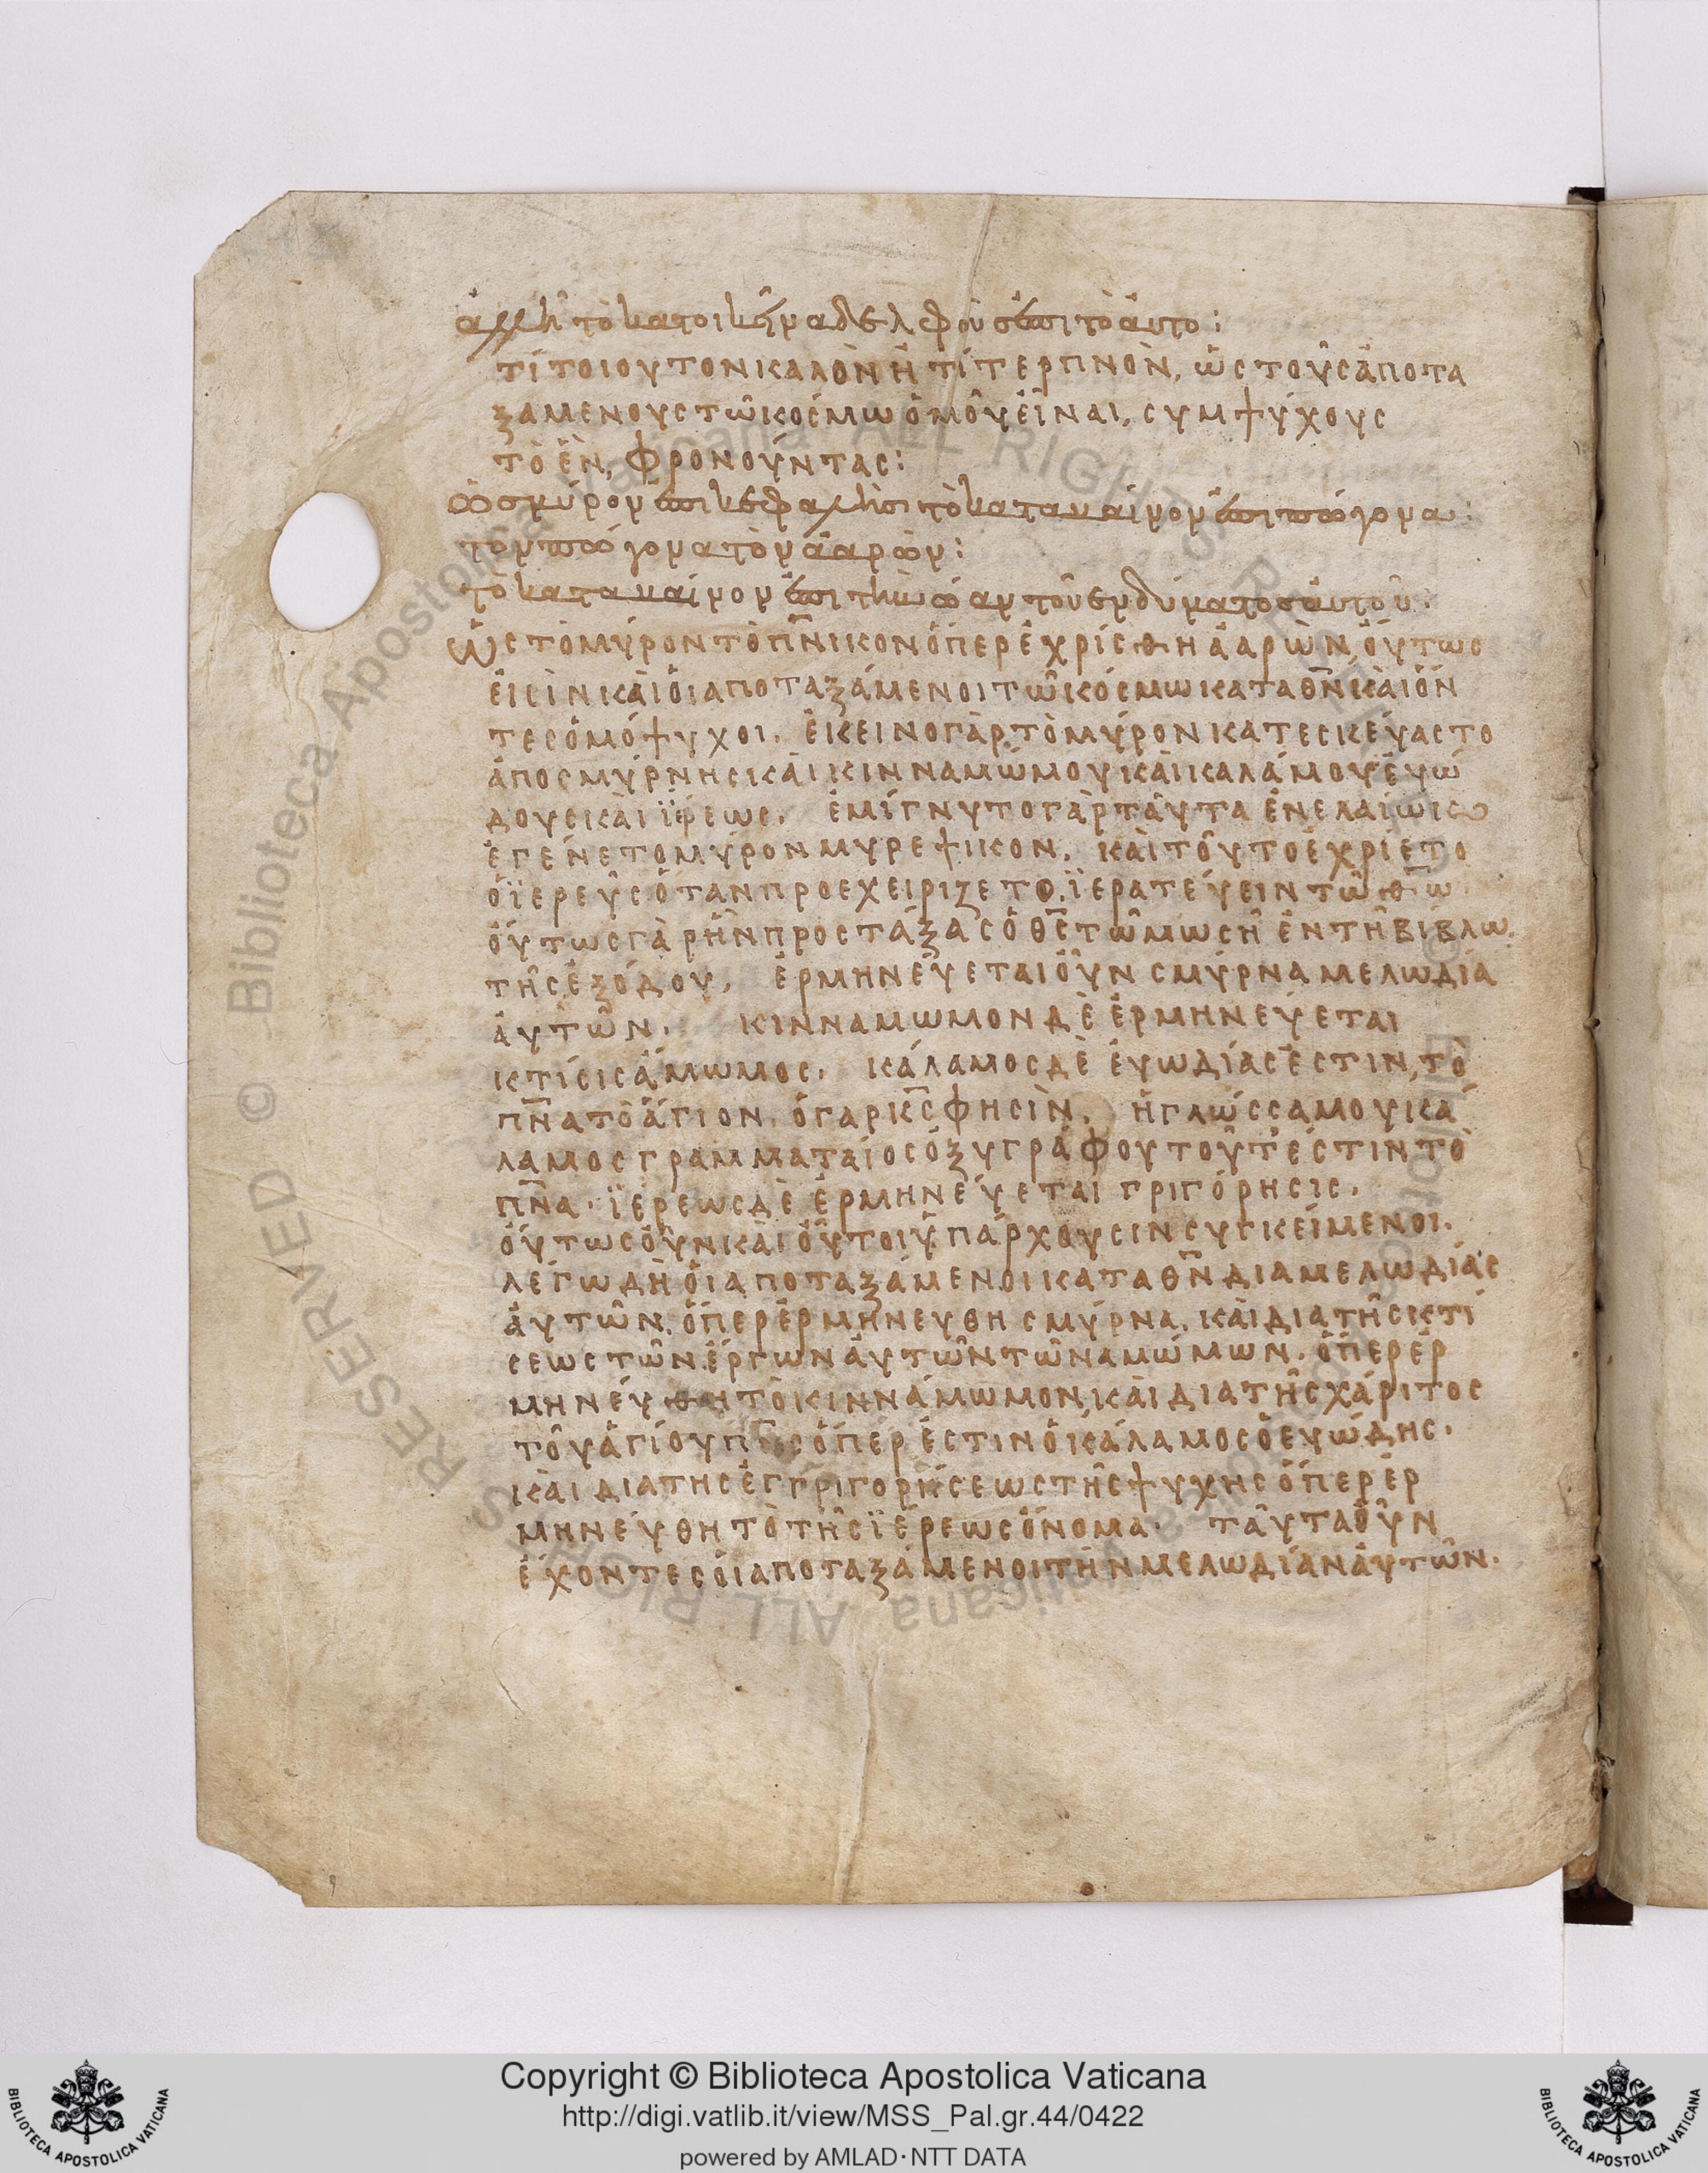 ἀλλ' ἢ τὸ κατοικεῖν ἀδελφοὺς ἐπι τὸ ἀυτο :
τί τοιουτον καλὸν ἢ τί τερπνὸν, ὡς τοὺς ἀποτα
ξαμενους τῶ κόσμω ὁμοῦ εἶναι, συμψύχους
τὸ ἓν, φρονούντας :
ὡς μύρον ἐπι κεφαλῆς τὸ καταβαίνον ἐπι πώγονα :
τὸν πώγονα τὸν ἀαρών :
τὸ καταβαίνον ἐπι τὴν ὤαν τοῦ ενδύματος ἀυτοῦ :
Ὡς τὸ μύρον τὸ πνικον ὅπερ ἐχρίσθη ἀαρὼν, ὅυτως
ἐισὶν κὰι ὁι αποταξάμενοι τῶ κόσμω κατα θν κὰι ὄν
τες ὁμόψυχοι. ἐκεινο γὰρ τὸ μύρον κατεσκεύαστο
ἀπο σμύρνης κὰι κινναμώμου κὰι καλάμου ἐυώ
δους κὰι ϊρεως. ἐμίγνυτο γὰρ τᾶυτα ἐν ελαίω κὰι
ἐγένετο μύρον μυρεψικον. κὰι τοῦτο ἐχρίετο
ὁ ϊερεὺς ὅταν προεχειριζετο ϊερατεύειν τῶ θω
ὅυτως γὰρ ἦν προστάξας ὁ θς τῶ μωσῆ ἐν τῆ βιβλω
τῆς ἐξόδου, ἑρμηνεύεται ὀῦν σμύρνα μελωδία
ἀυτῶν. κινναμωμον δὲ ἑρμηνεύεται
κτίσις ἄμωμος. κάλαμος δὲ ἐυωδίας ἐστιν, τὸ
πνα τὸ ἅγιον. ὁ γαρ κς φησὶν, ἡ γλώσσα μου κά
λαμος γραμματαίος ὀξυγράφου τοῦτ' ἐστιν τὸ
πνα. ϊέρεως δὲ ἑρμηνεύεται γριγόρησις.
ὅυτως ὀῦν κὰι ὁῦτοι ὑπάρχουσιν συγκείμενοι.
λέγω δὴ ὁι αποταξάμενοι κατα θν δια μελωδίας
ἀυτῶν. ὅπερ ἑρμηνευθη σμύρνα. κὰι δια τῆς κτί
σεως τῶν ἔργων ἀυτῶν τῶν αμώμων. ὅπερ ἑρ
μηνεύθη τὸ κιννάμωμον, κὰι δια τῆς χάριτος
τοῦ ἁγίου πνς ὅπερ ἐστιν ὁ κάλαμος ὁ ευώδης.
κὰι δια της ἐγγριγορήσεως τῆς ψυχης ὅπερ ἑρ
μηνεύθη τὸ τῆς ϊέρεως ὄνομα. τᾶυτα ὀῦν
ἔχοντες ὁι αποταξάμενοι τὴν μελωδίαν ἀυτῶν.
Copyright © Biblioteca Apostolica Vaticana
http://digi.vatlib.it/view/MSS_Pal.gr.44/0422
powered by AMLAD·NTT DATA
BIBLIOTECA APOSTOLICA VATICANA
BIBLIOTECA APOSTOLICA VATICANA